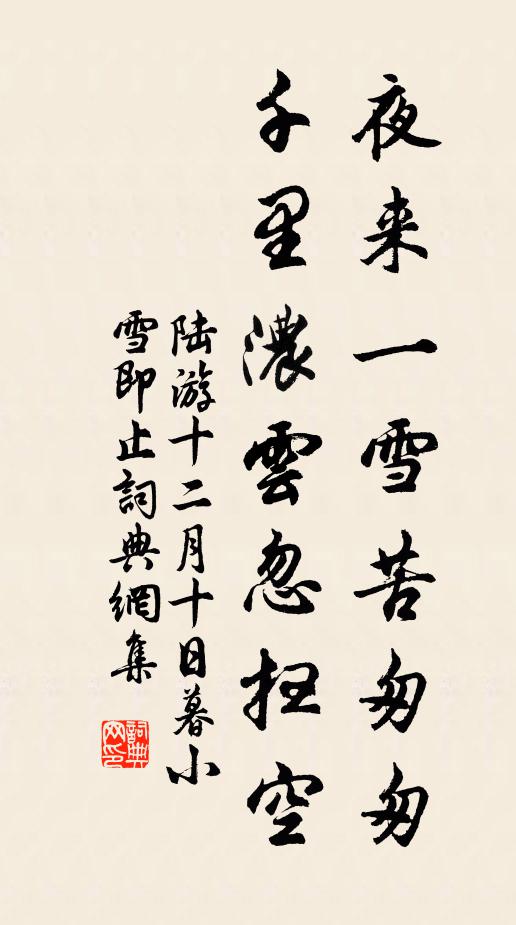 夜来一雪苦匆匆
千里濃雲忽扫空
陆游十二月十日暮小
雪即止詞典網集
詞典
网印